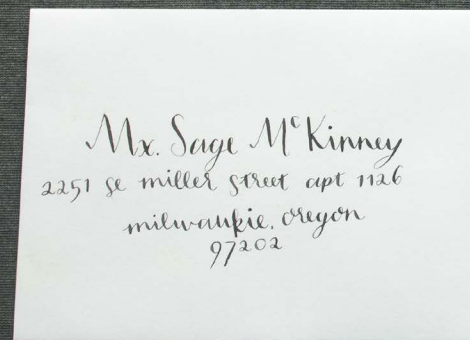 Mx. Sage McKinney
2251 se miller street apt 1126
milwaukie, oregon
97202